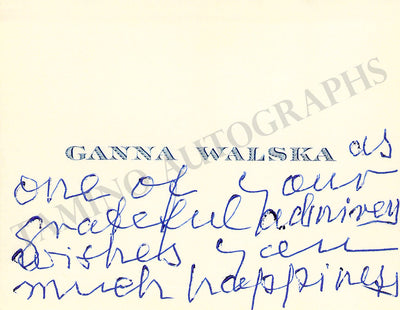 GANNA WALSKA as
one of your
grateful admirers
wishes you
much happiness
TAMINO AUTOGRAPHS